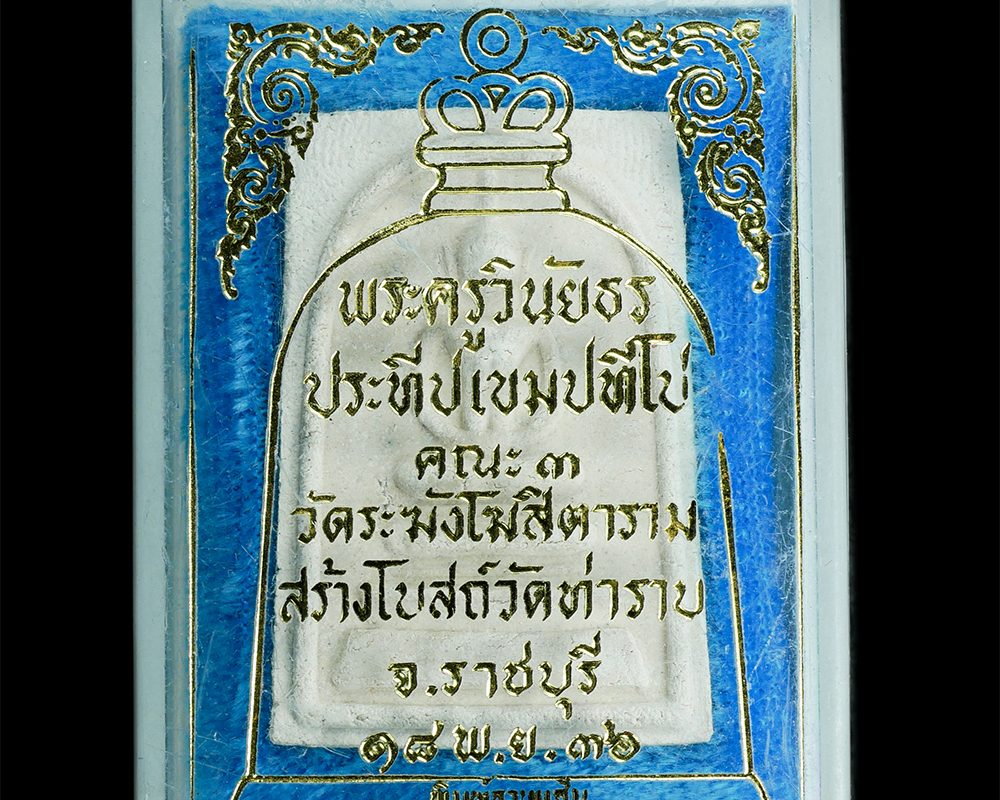 พระครูวินัยธร
ประทีป เขมปทีโป
คณะ ๓
วัดระฆังโฆสิตาราม
สร้างโบสถ์วัดท่าราบ
จ.ราชบุรี
๑๘ พ.ย. ๓๖